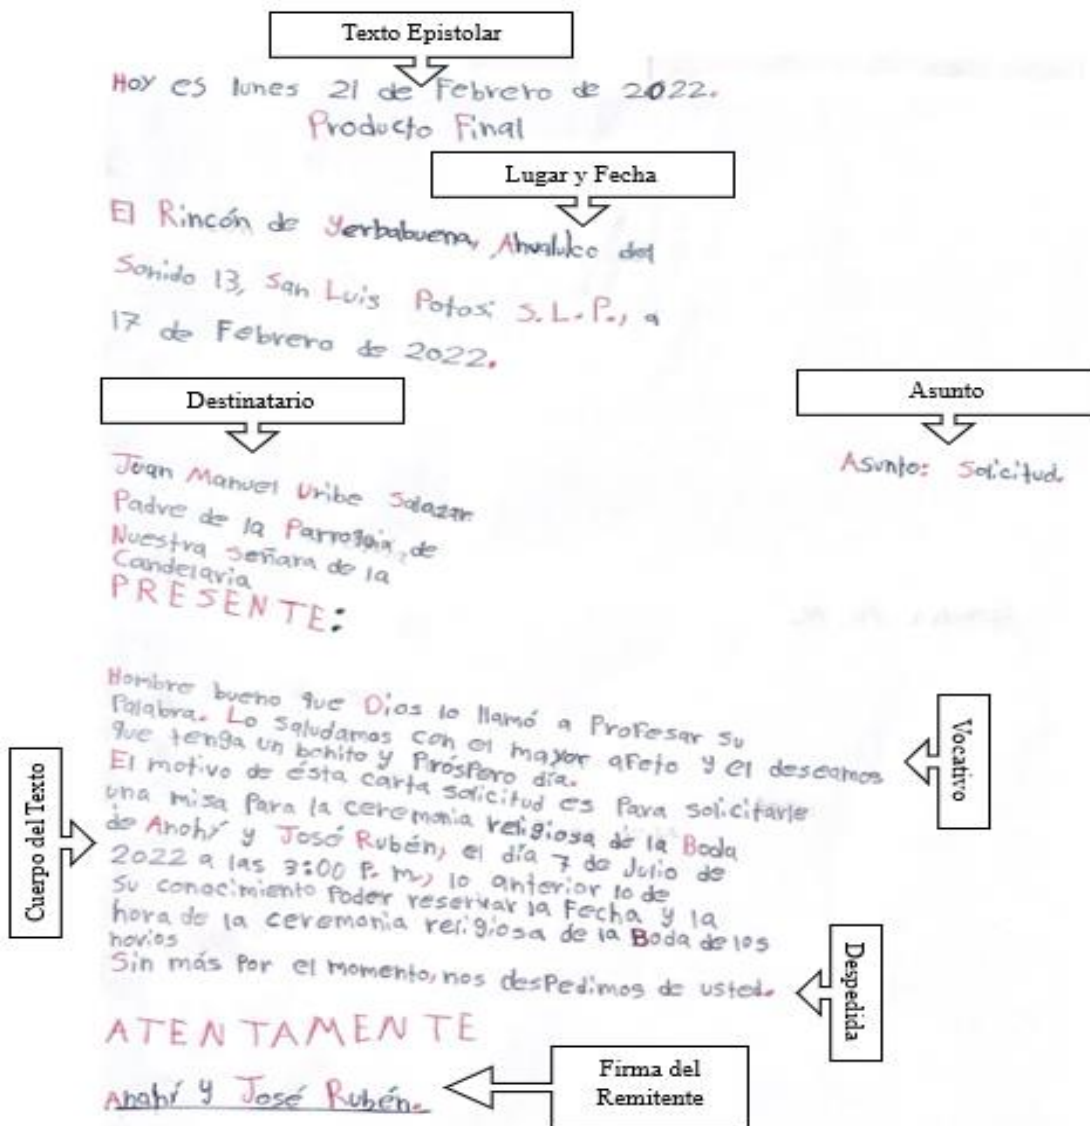 Texto Epistolar
Hoy es lunes 21 de Febrero de 2022.
Producto Final
Lugar y Fecha
El Rincón de Yerbabuena, Ahualulco del
Sonido 13, San Luis Potosí S.L.P., a
17 de Febrero de 2022.
Destinatario
Asunto
Asunto: Solicitud.
Juan Manuel Uribe Salazar
Padre de la Parroquia, de
Nuestra Señara de la
Candelaria
PRESENTE:
Hombre bueno que Dios lo llamó a Profesar su
Palabra. Lo saludamos con el mayor afeto y el deseamos
que tenga un bonito y Próspero día.
Vocativo
El motivo de ésta carta solicitud es Para solicitarle
una misa Para la ceremonia religiosa de la Boda
de Anahí y José Rubén, el día 7 de Julio de
2022 a las 3:00 P. m., lo anterior lo de
Su conocimiento Poder reservar la Fecha y la
hora de la ceremonia religiosa de la Boda de los
novios
Cuerpo del Texto
Sin más Por el momento, nos desPedimos de usted.
Despedida
ATENTAMENTE
Anahí y José Rubén.
Firma del
Remitente